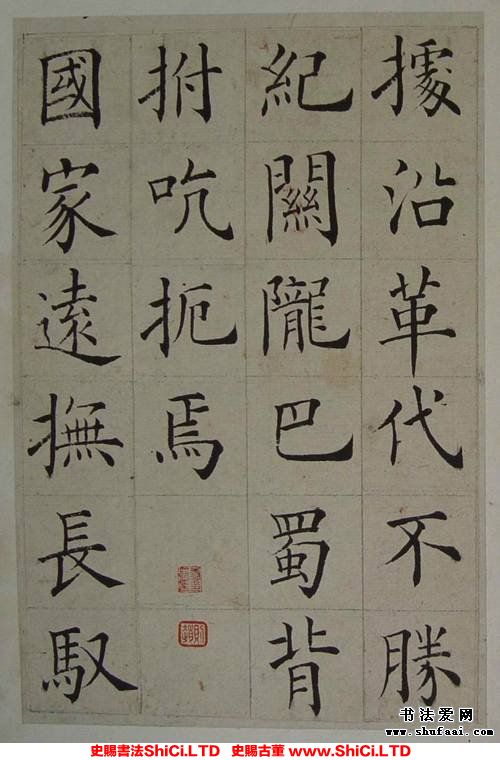 據沿革代不勝
紀關隴巴蜀背
拊吭扼焉
國家遠撫長馭
书法爱网
www.shufaai.com
史賜書法ShiCi.LTD 史賜古董 www.ShiCi.LTD